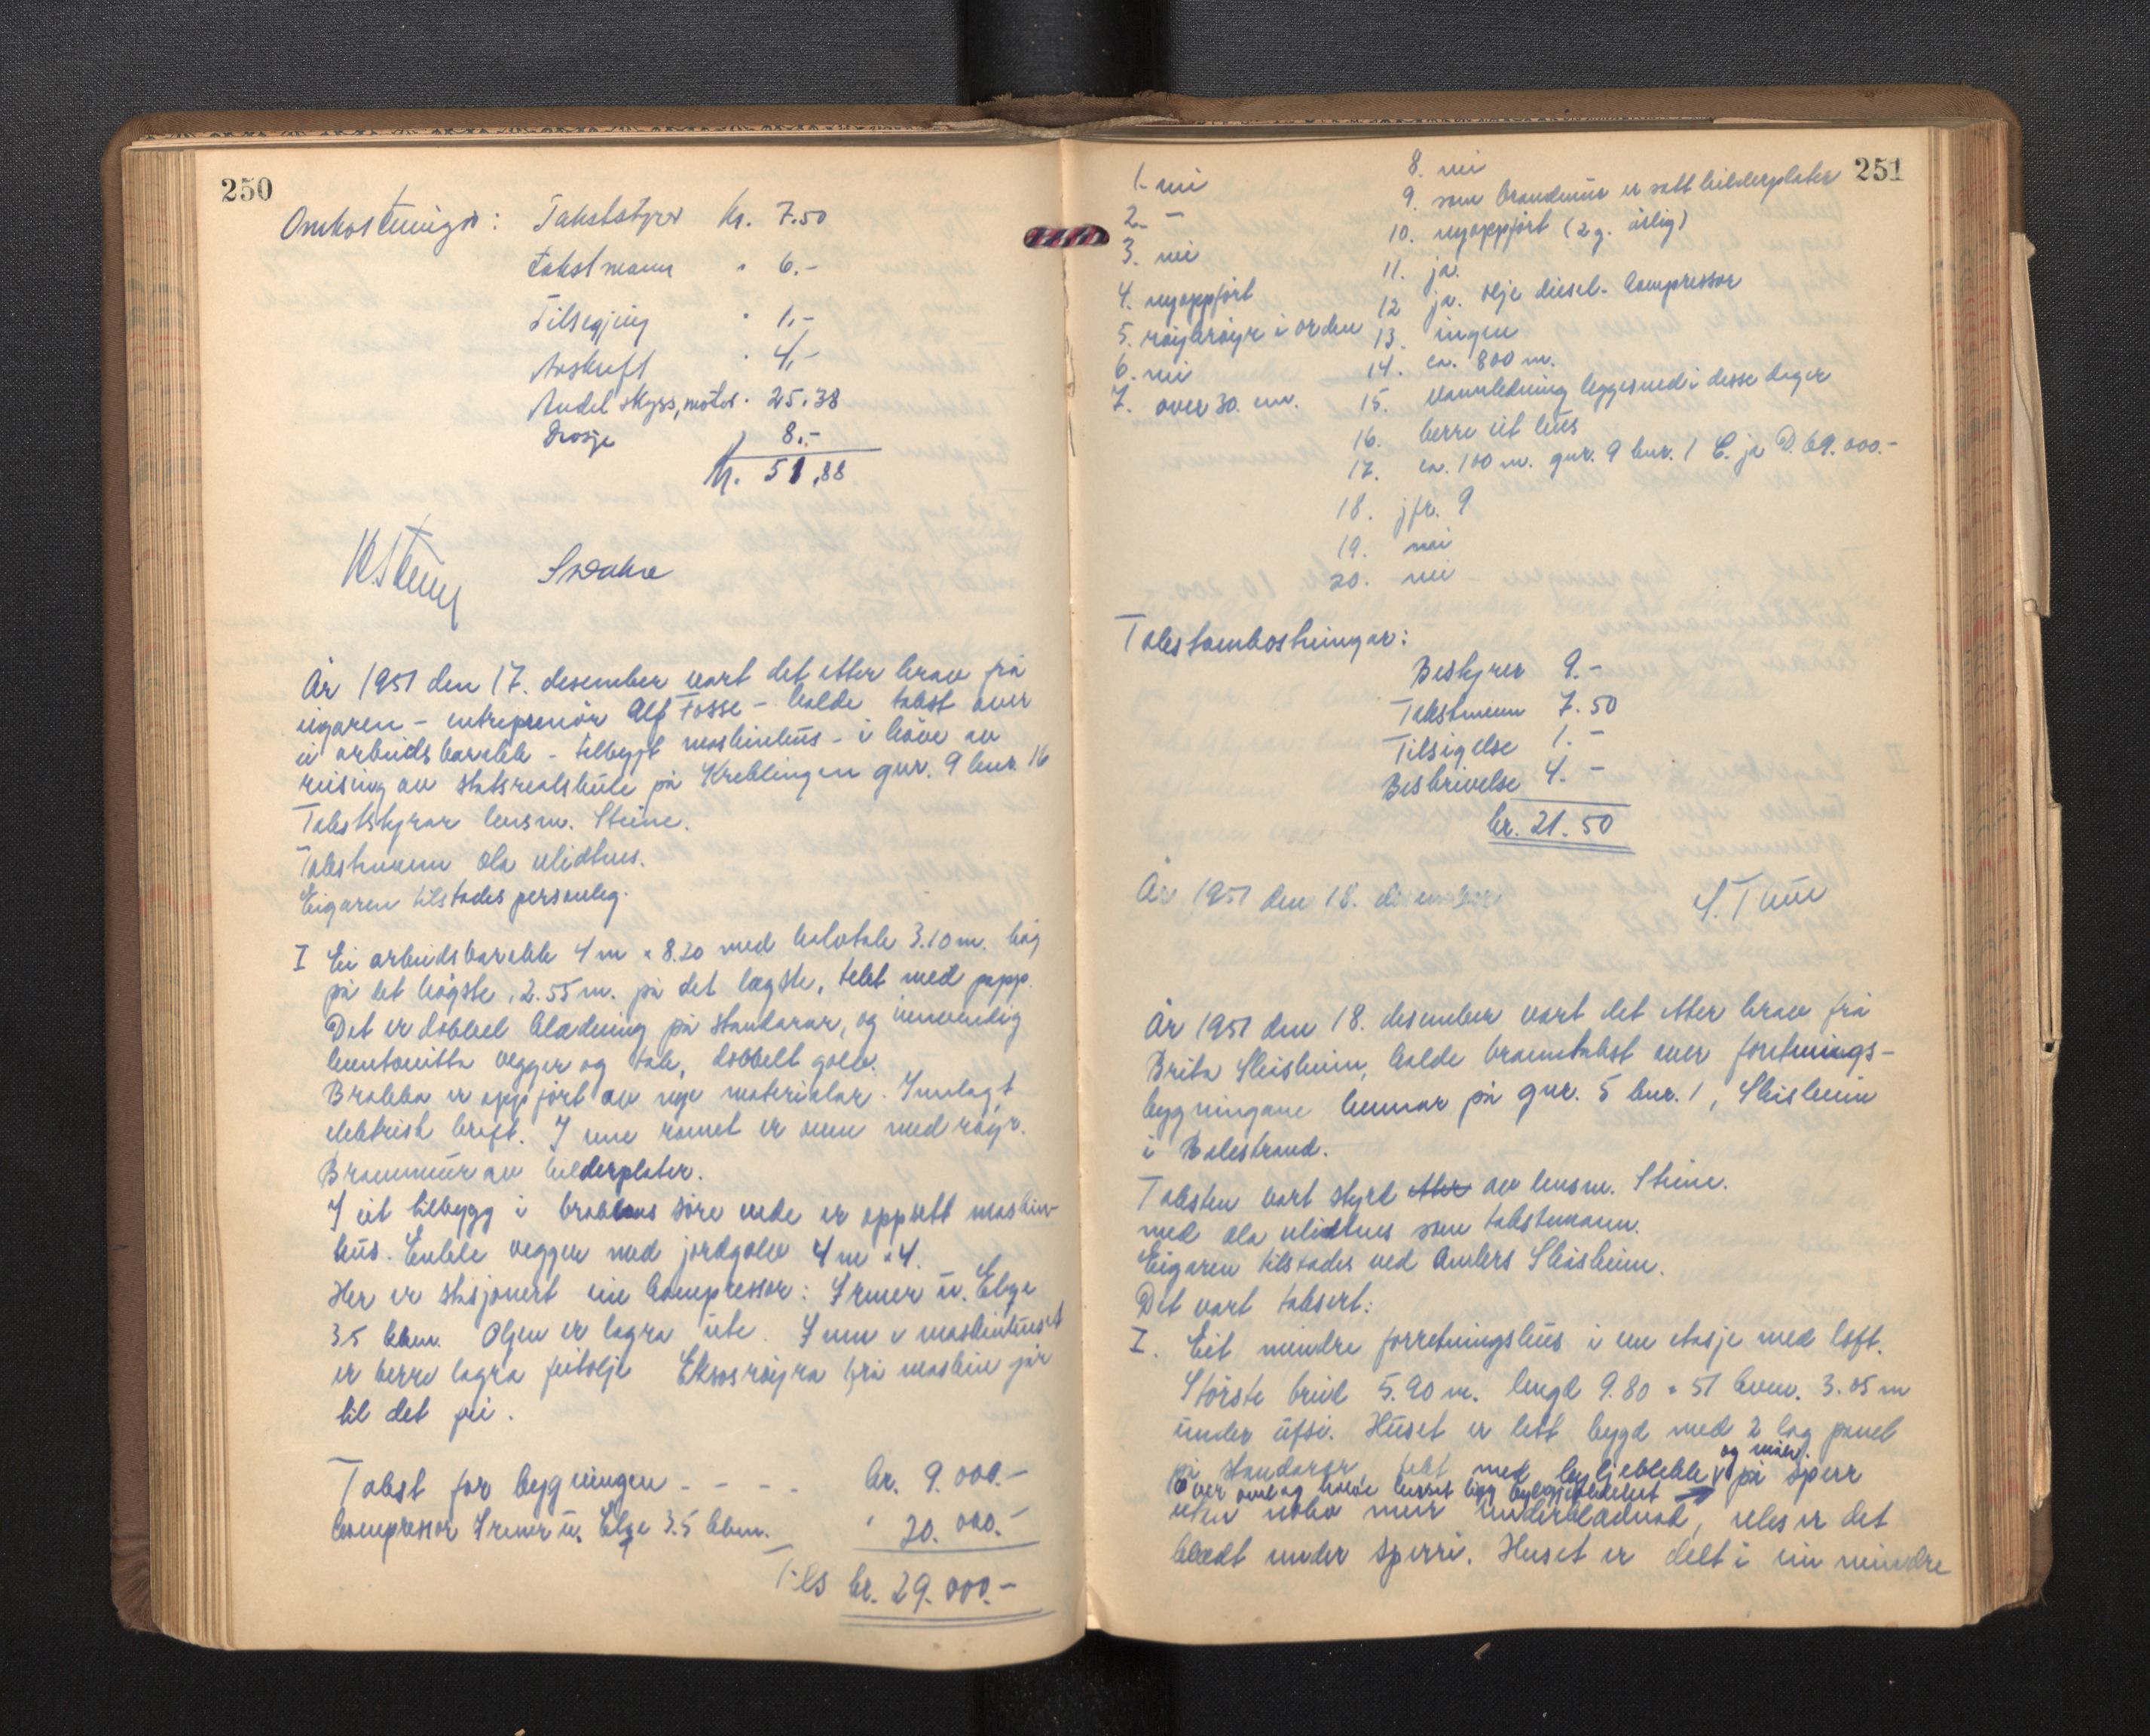 250
Omkostningar: Takststyrer kr. 7.50
Takstmann " 6.-
Tilsegjing " 1.-
Avskrift " 4.-
Andel skyss, motor " 25.38
Drosje 8.-
kr. 51.88
År 1951 den 17. desember vart det etter krav frå
eigaren - entreprenör Alf Fosse - halde takst over
ei arbeidsbarakk - tilbygt maskinhus - i höve av
reising av statsrealskule på Kreklingen gnr. 9 bnr. 16
Takststyrar lensm. Steine.
Takstmann Ola
Eigaren tilstades personleg.
I Ei arbeidsbarakk 4 m x 8.20 med halvtak 3.10 m. høg
på det høgste, 2.55 m. på det lægste, tekt med papp.
Det er dobbel klædning på standarar, og innvendig
vegger og tak, dobbelt golv.
Brakka er oppført av nye materialar. Innlagt
elektrisk kraft. I eine romet er omn med røyr.
Brannmur av helderplater.
I eit tilbygg i brakkas søre ende er oppsett maskin-
hus. Enkle vegger med jordgolv 4 m x 4.
Her er stasjonert ein kompressor: Irmer u. Elze
3.5 kbm. Oljen er lagra ute. Inne i maskinhuset
er berre lagra feitolje Eksosrøyra frå maskin går
til det fri.
Takst for bygningen - - - - kr. 9.000.-
Kompressor Irmer u. Elze 3.5 kbm. " 20.000.-
Tils kr. 29.000.-
251
1. nei
2. -
3. nei
4. nyoppført
5. røykrøyr i orden
6. nei
7. over 30. cm.
8. nei
9. som brandmur er sett helderplater
10. nyoppført (2 g. årlig)
11. ja.
12 ja. olje diesel-kompressor
13. ingen
14. ca. 800 m.
15. vannledning legges ned i desse dager
16. berre eit hus
17. ca. 100 m. gnr. 9 bnr. 1 C. ja D. 69.000.-
18. jfr. 9
19. nei
20. nei
Takstomkostningar:
Bestyrer 9.-
Takstmann 7.50
Tilsigelse 1.-
Beskrivelse 4.-
kr. 21.50
År 1951 den 18. desember
År 1951 den 18. desember vart det etter krav frå
Brita Skåsheim, halde branntakst over forretnings-
bygningane hennar på gnr. 5 bnr. 1, Skåsheim
i Balestrand.
Taksten vart styrd etter av lensm. Steine.
med Ola som takstmann.
Eigaren tilstades ved Anders Skåsheim.
Det vart taksert:
I. Eit mindre forretningshus i en etasje med loft.
Største breid 5.90 m. lengd 9.80 = 57 kvm. 3.05 m
under ufsi. Huset er lett bygd med 2 lag panel
på standarar, tekt med bylgjeblekk på sperr
uten noko meir underklædnad, elles er det
klædt under sperri. Huset er delt i ein mindre